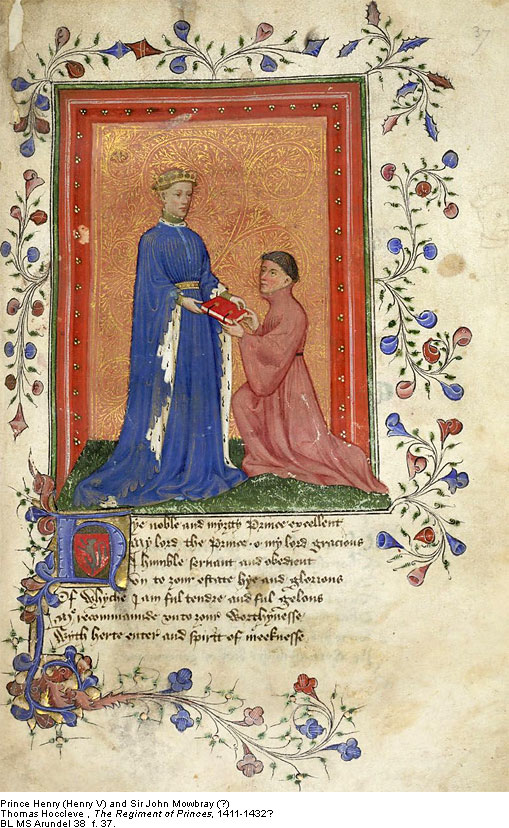 37
Hye noble and myȝty Prince excellent
My lord the Prince o my lord gracious
I humble servant and obedient
Vn to ȝour estate hye and glorious
Of whyche I am ful tendre and ful gelous
Me recommande vnto ȝour worthynesse
Wyth herte enter and spirit of meeknesse
Prince Henry (Henry V) and Sir John Mowbray (?)
Thomas Hoccleve , The Regiment of Princes, 1411-1432?
BL MS Arundel 38 f. 37.